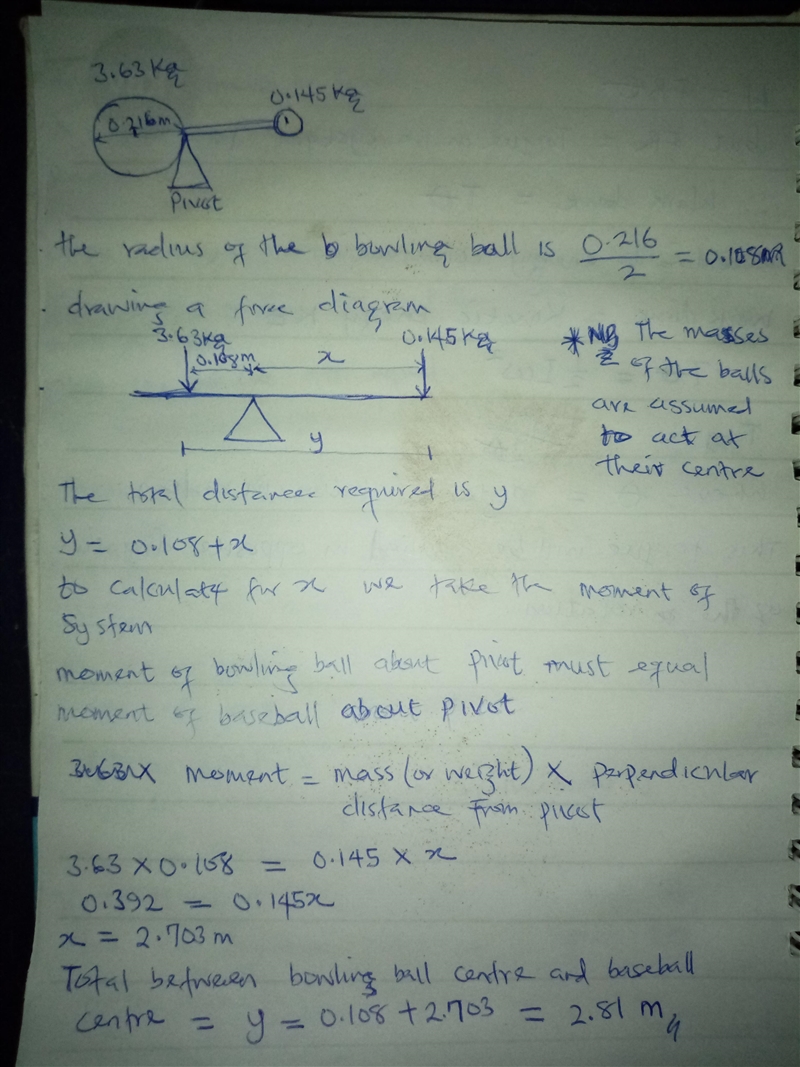 3.63 Kg
0.145 Kg
0.216m
Pivot
the radius of the bowling ball is 0.216/2 = 0.108m
drawing a force diagram
3.63Kg
0.145Kg
0.108m
x
y
* NB The masses
of the balls
are assumed
to act at
their centre
The total distance required is y
y = 0.108+x
to calculate for x we take the moment of
System
moment of bowling ball about pivot must equal
moment of baseball about pivot
moment = mass (or weight) X perpendicular
distance from pivot
3.63 X 0.108 = 0.145 X x
0.392 = 0.145x
x = 2.703 m
Total between bowling ball centre and baseball
centre = y = 0.108 + 2.703 = 2.81 m